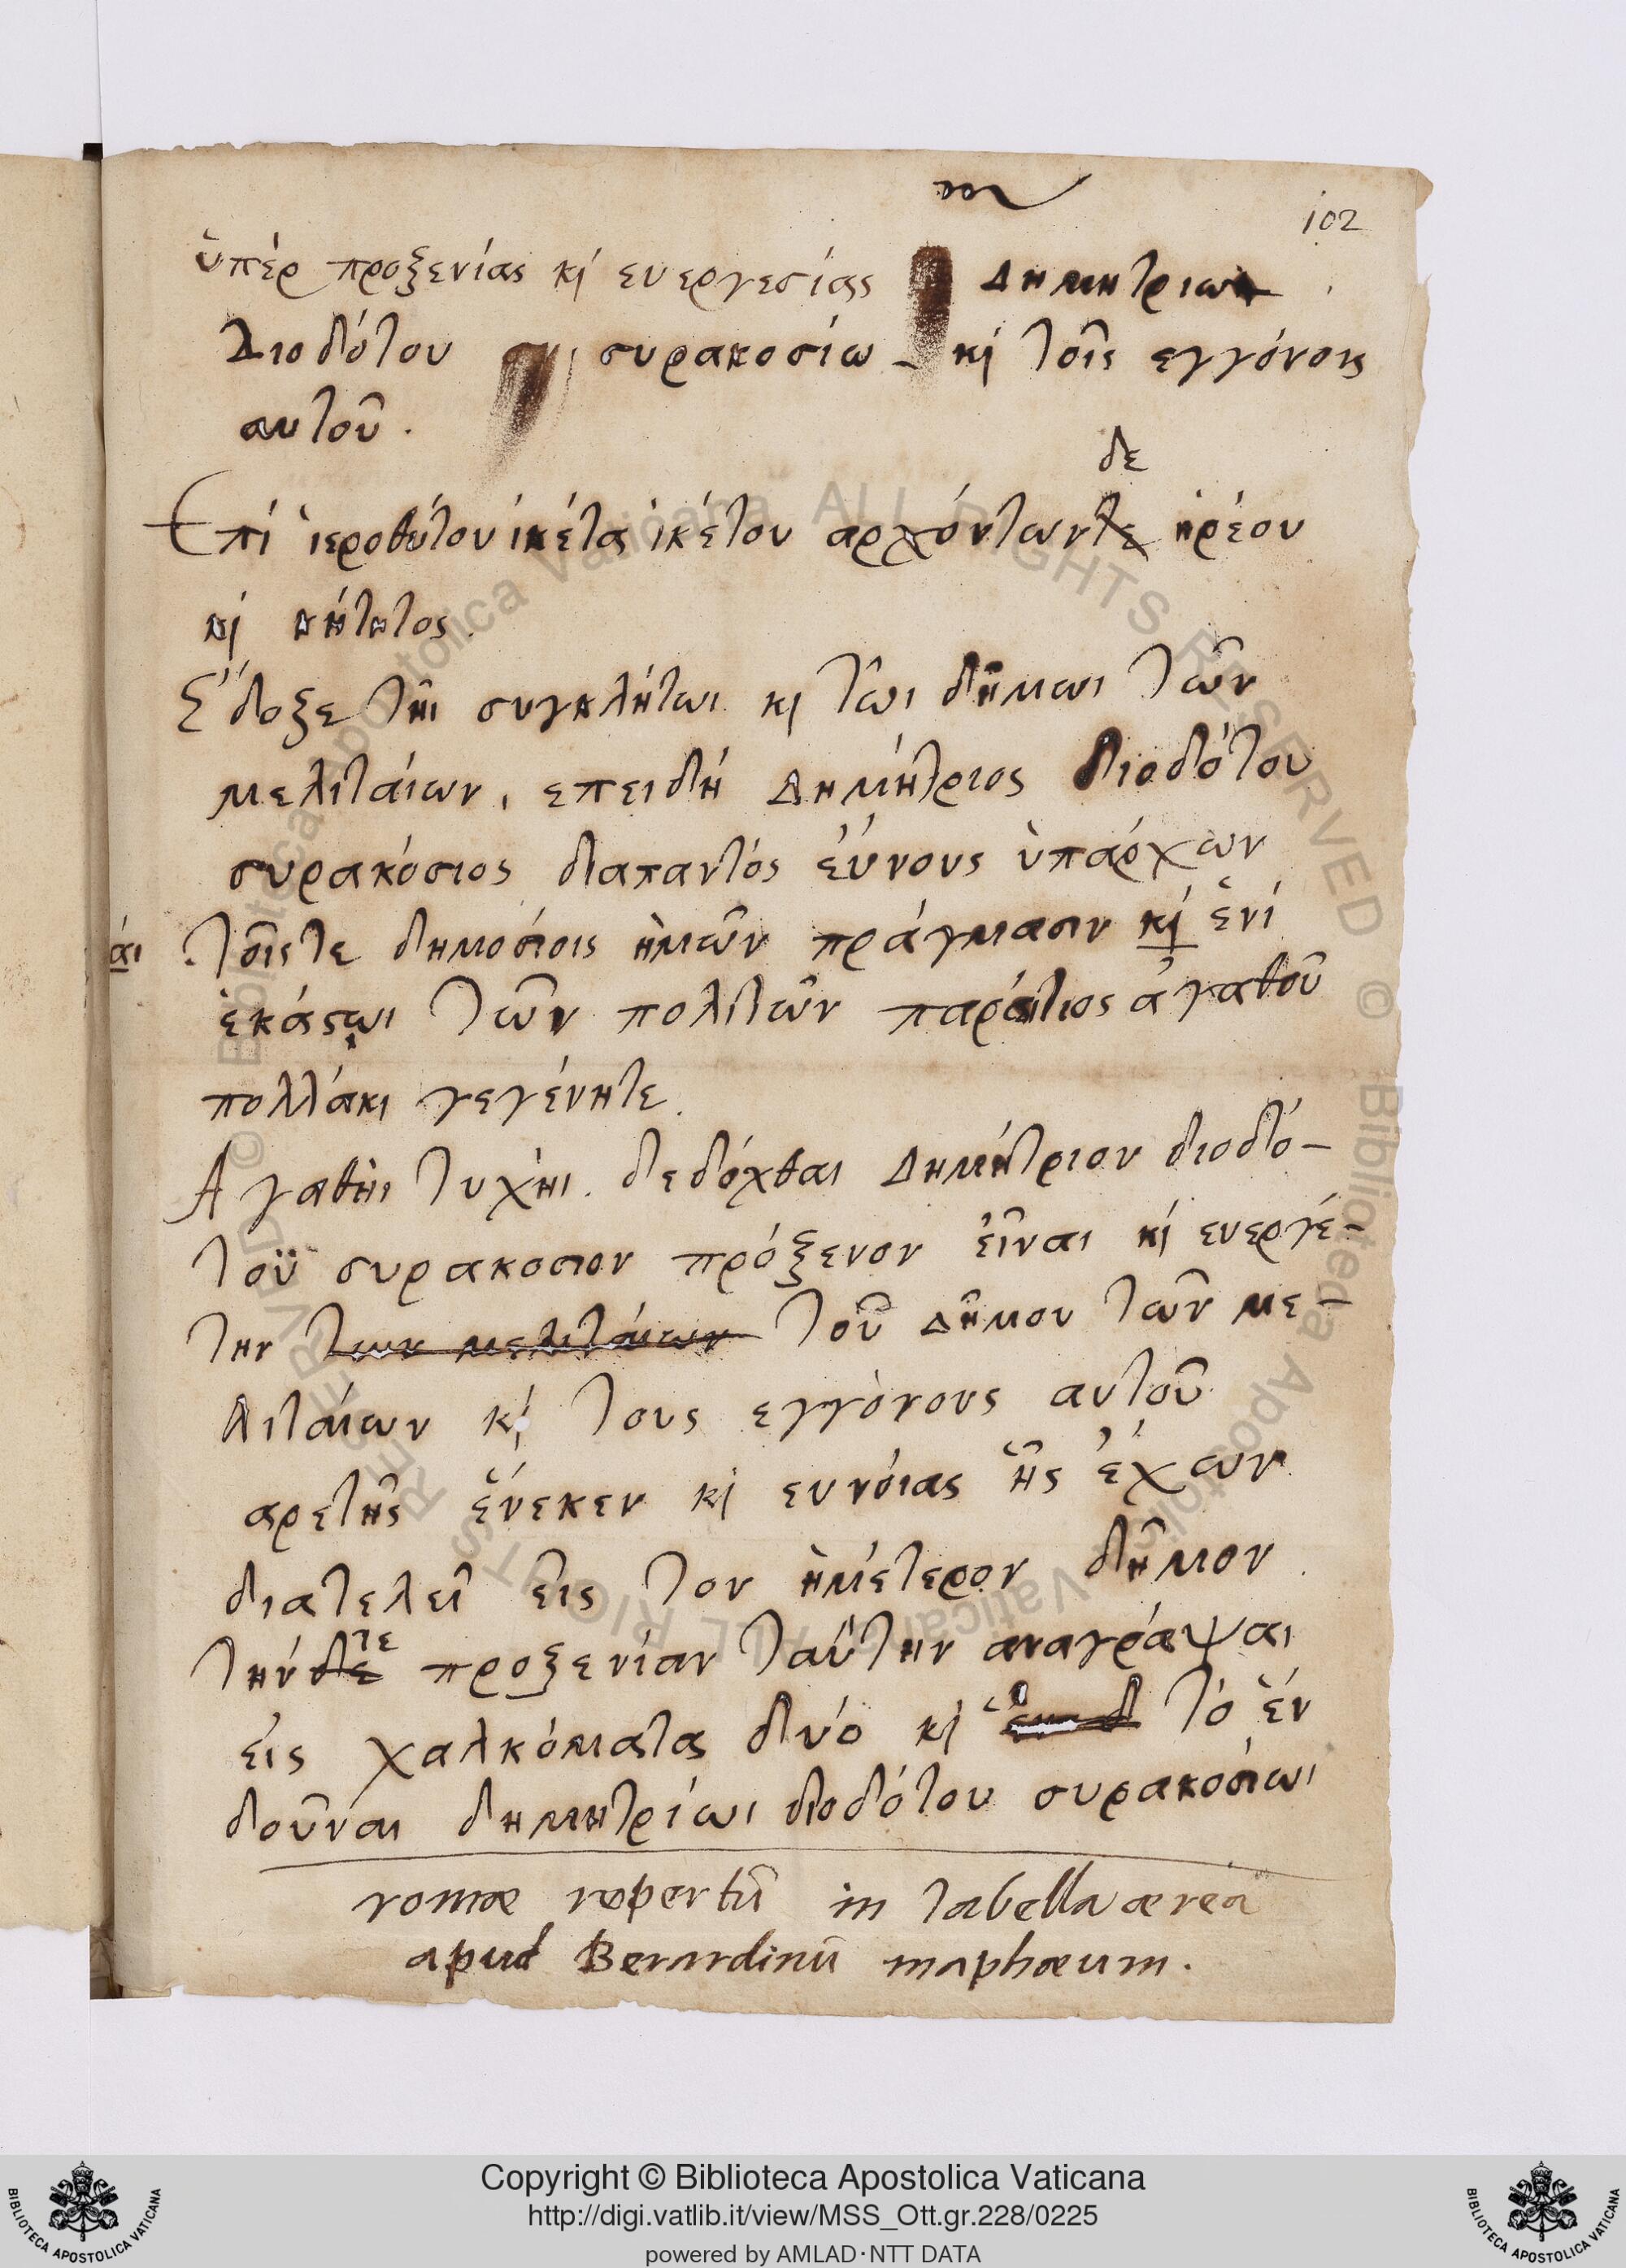 102
ὑπέρ προξενίας κί ευεργεσίας Δημητριω
Διοδότου συρακοσίω κί τοῖς εγγόνοις
αυτοῦ.
δε
Επί ἱεροθύτου ἱκέτα ἱκέτου αρχόντων τε ἡρέου
κί κήτητος.
Ἔδοξε τῆι συγκλήτωι κι τῶι δῆμωι τῶν
μελιταίων, επειδή Δημήτριος διοδότου
συρακόσιος διαπαντός ἐύνους ὑπάρχων
άι τοῖςτε δημοσίοις ἡμῶν πράγμασιν κί ἑνί
ἑκάςωι τῶν πολιτῶν παράιτιος ἀγαθοῦ
πολλάκι γεγένητε.
Αγαθῆι τυχῆι. δεδόχθαι Δημήτριον διοδό-
τοϋ συρακοσιον πρόξενον εἶναι κί ευεργέ-
την των μελιτάιων τοῦ Δῆμου τῶν με-
λιτάιων κί τους εγγόνους αυτοῦ
αρετῆς ἕνεκεν κί ευνόιας ἧς ἔχων
διατελεῖ εῖς τον ἡμέτερον δῆμον.
τε
τήνδε προξενίαν ταύτην αναγράψαι
ἐις χαλκόματα δυό κί τό ἕν
δοῦναι δημητρίωι διοδότου συρακοσίωι
romæ repertū in tabella ærea
apud Berardinū maphæum.
Copyright © Biblioteca Apostolica Vaticana
http://digi.vatlib.it/view/MSS_Ott.gr.228/0225
powered by AMLAD·NTT DATA
BIBLIOTECA APOSTOLICA VATICANA
BIBLIOTECA APOSTOLICA VATICANA